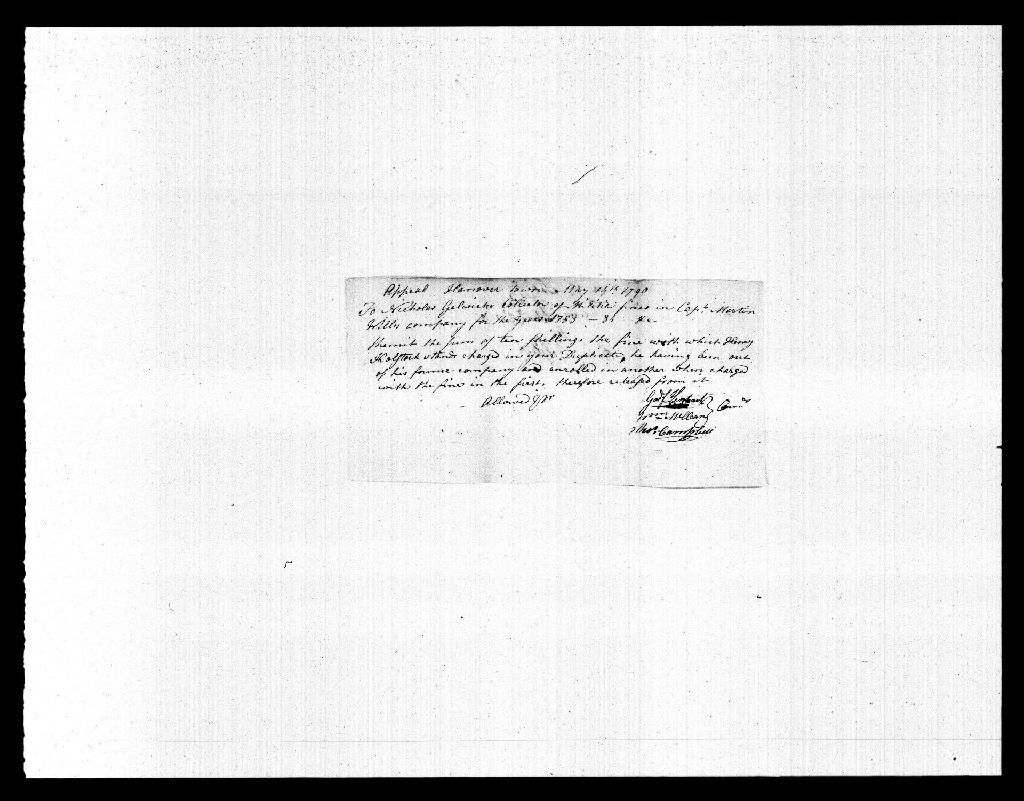 Appeal Hanover town May 14th 1790
To Nicholas Gelwicks Collector of Militia fines in Capt. Martin
Wills company for the year 1783 - 84 &c
the sum of ten shillings the fine with which Henry
charged in your Duplicate, he having been out
of his former company and enrolled in another when charged
with the fine in the first, therefore released from it
Allowed
Com
Wm McClean
Campbell